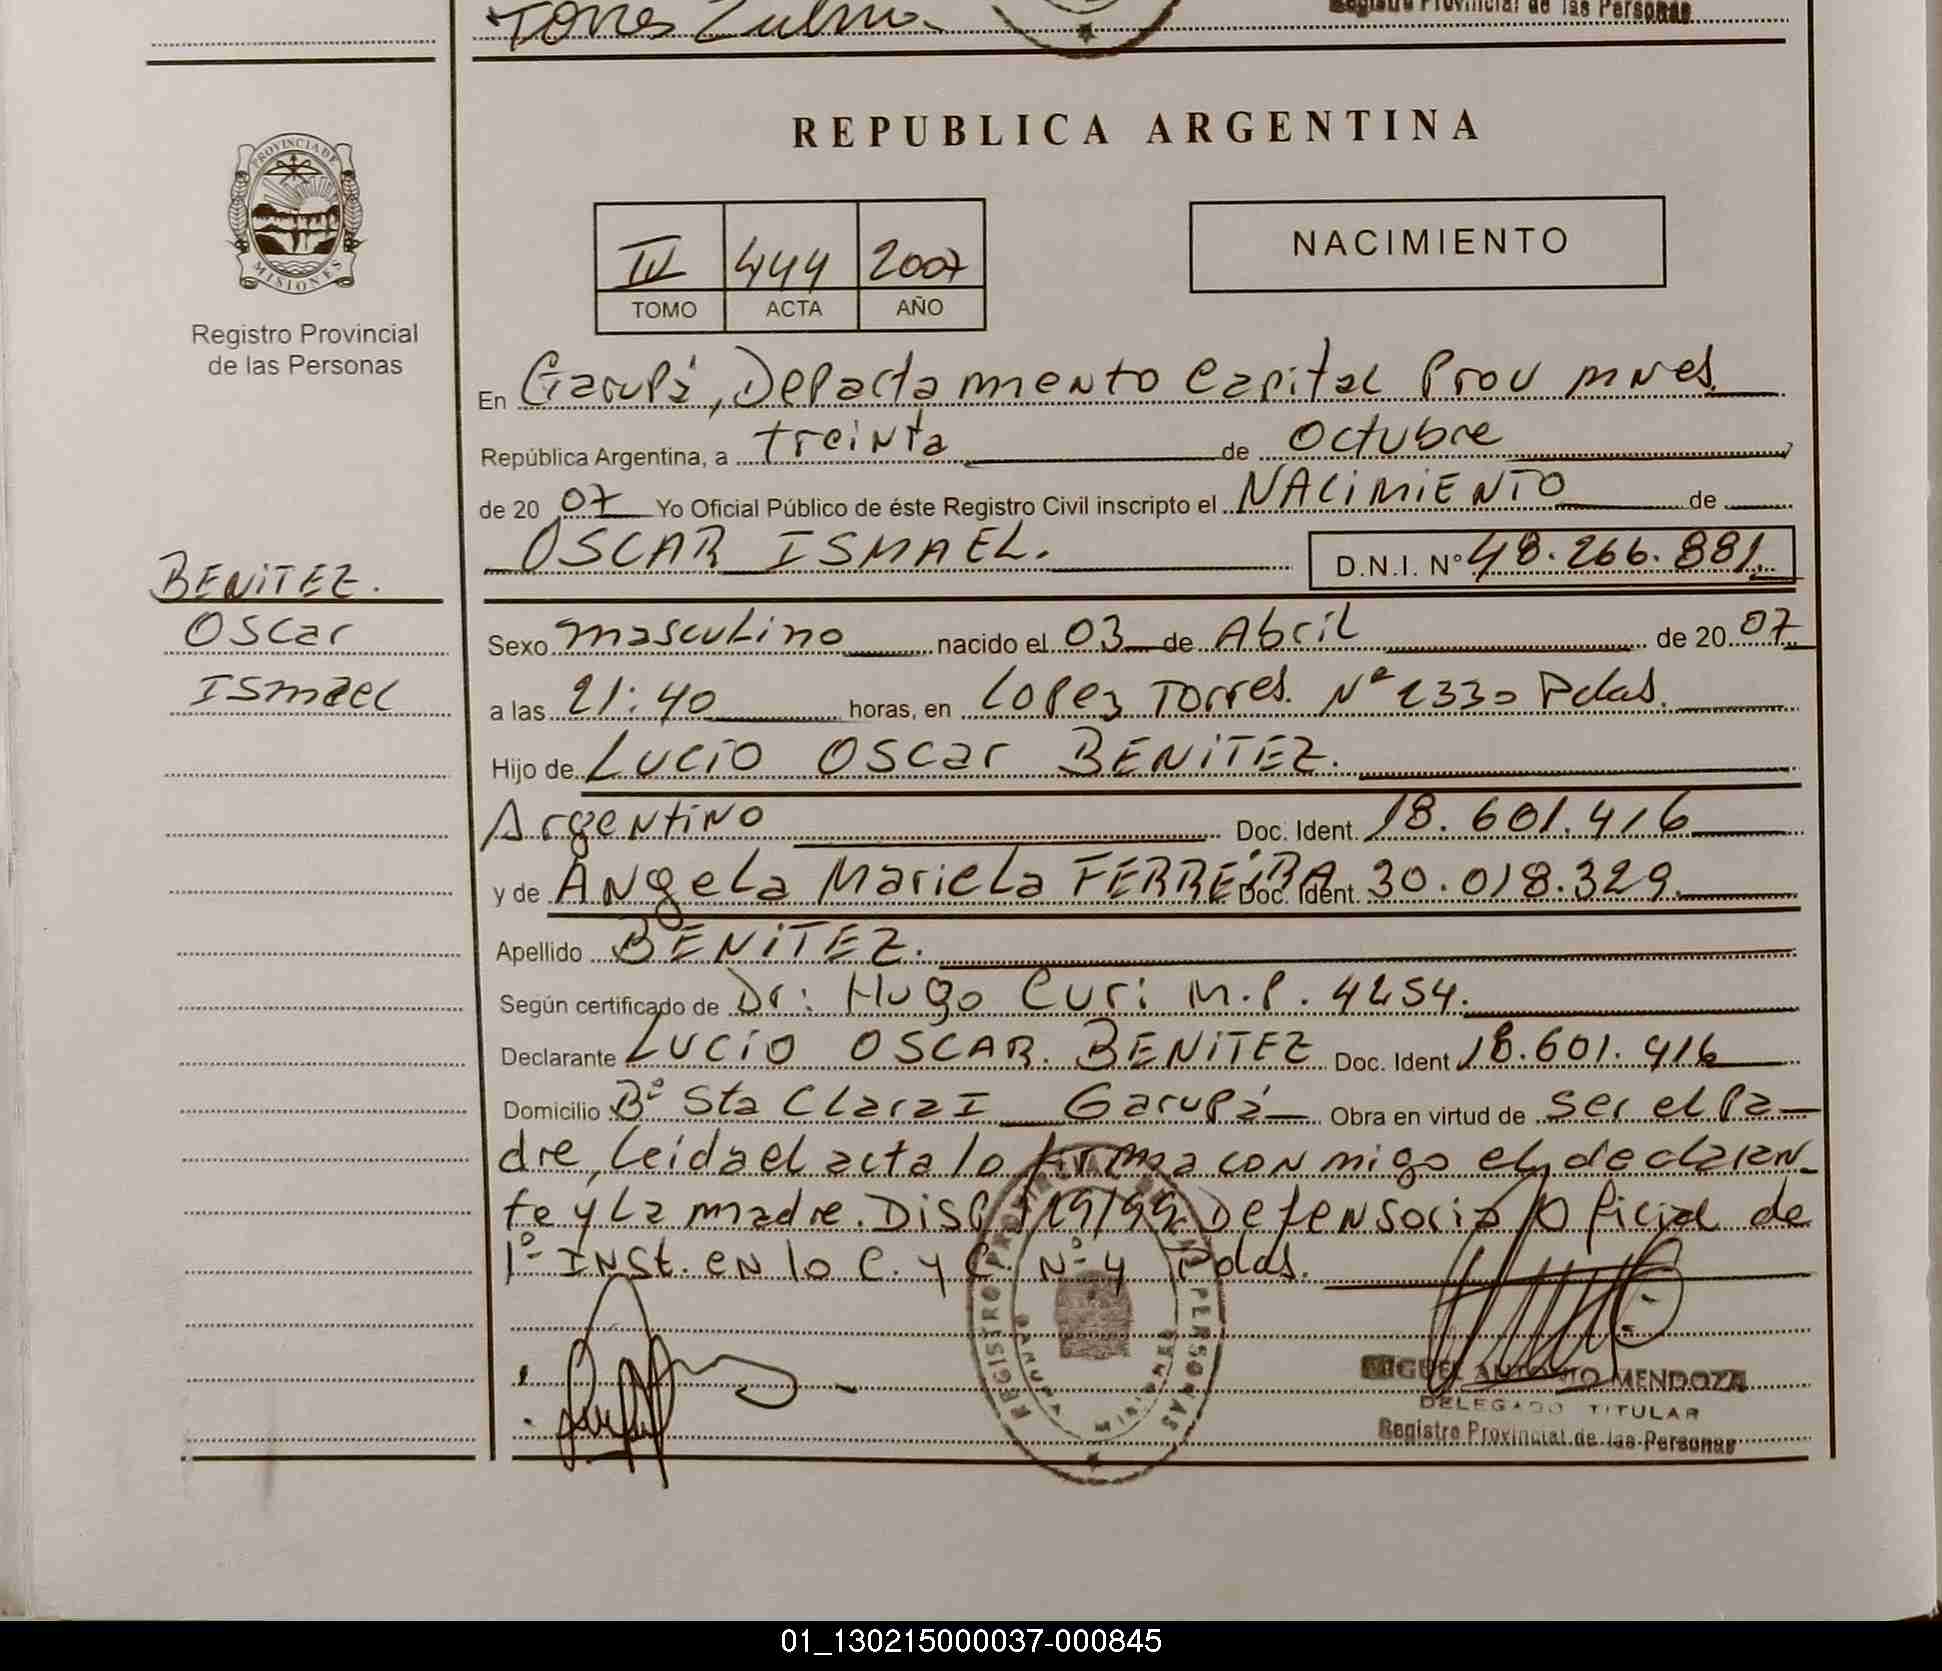 Torres Zulma
Registro Provincial de las Personas
PROVINCIA DE
MISIONES
Registro Provincial
de las Personas
REPUBLICA ARGENTINA
444 2007
TOMO ACTA AÑO
NACIMIENTO
En Garupá, Departamento Capital Prov mnes.
República Argentina, a treinta de Octubre
de 2007 Yo Oficial Público de éste Registro Civil inscripto el NACIMIENTO de
OSCAR ISMAEL. D.N.I. N° 48.266.881.
BENITEZ.
Oscar
Ismael
Sexo masculino nacido el 03 de Abril de 2007
a las 21:40 horas, en Lopez Torres. Nº 2330 Pdas.
Hijo de LUCIO OSCAR BENITEZ.
Argentino Doc. Ident. 18.601.416
y de Angela Mariela FERREIRA Doc. Ident. 30.018.329.
Apellido BENITEZ.
Según certificado de Dr: Hugo Curi M.P. 4254.
Declarante LUCIO OSCAR. BENITEZ Doc. Ident 18.601.416
Domicilio Bº Sta Clara I Garupá Obra en virtud de ser el Pa-
dre, leida el acta lo firma conmigo el declaran-
te y la madre. Disp 119/99 Defensoria Oficial de
1º INST. en lo C. y C. Nº 4 Pdas.
REGISTRO PROVINCIAL DE LAS PERSONAS
GARUPA
MISIONES
MIGUEL ANTONIO MENDOZA
DELEGADO TITULAR
Registro Provincial de las Personas
01_130215000037-000845